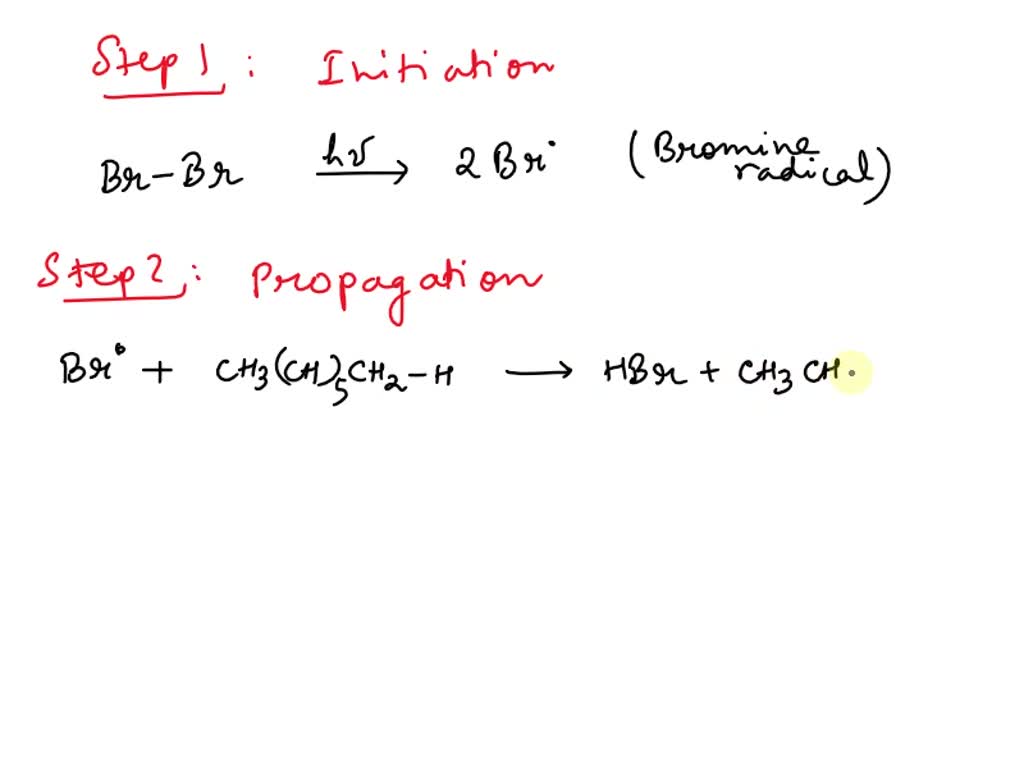 Step 1 : Initiation
Br-Br hν → 2 Br• (Bromine radical)
Step 2 : Propagation
Br• + CH3(CH)5CH2-H → HBr + CH3 CH